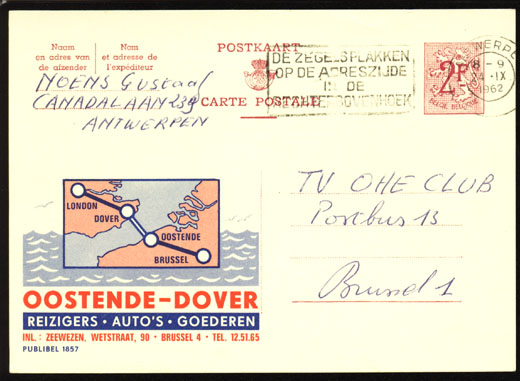 Naam
en adres van
de afzender
Nom
et adresse de
l'expéditeur
POSTKAART
CARTE POSTALE
NOENS Gustaaf
CANADALAAN 239
ANTWERPEN
DE ZEGELS PLAKKEN
OP DE ADRESZIJDE
IN DE
RECHTERBOVENHOEK
2F
BELGIE BELGIQUE
WERPE
8-9
24-IX
1962
LONDON
DOVER
OOSTENDE
BRUSSEL
OOSTENDE-DOVER
REIZIGERS • AUTO'S • GOEDEREN
INL.: ZEEWEZEN, WETSTRAAT, 90 - BRUSSEL 4 - TEL. 12.51.65
PUBLIBEL 1857
TV OHE CLUB
Postbus 13
Brussel 1